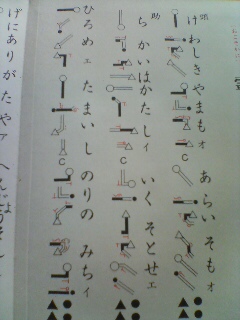 けわしき やまもォ あらい そもォ
助
ちかいは かたしィ いく そとせェ
ひろめェ たまいし のりの みちィ
げにありがたやァ